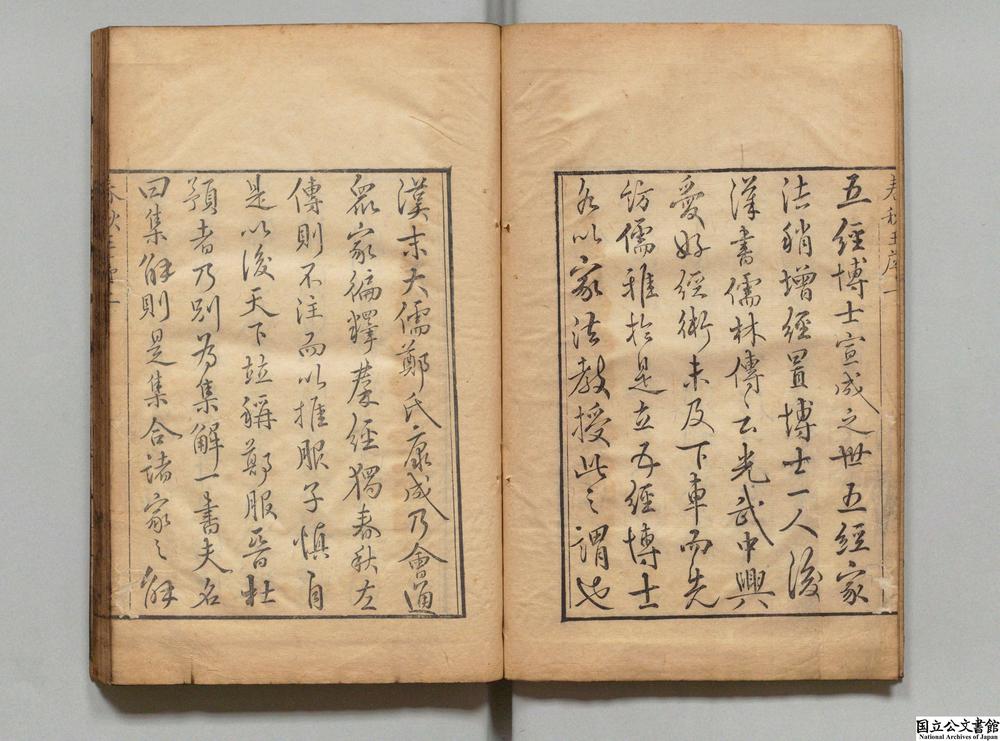 五經博士宣成之世五經家
法稍增經置博士一人後
漢書儒林傳云光武中興
愛好經術未及下車而先
訪儒雅於是立五經博士
各以家法教授此之謂也
漢末大儒鄭氏康成乃會通
眾家徧釋羣經獨春秋左
傳則不注而以推服子慎自
是以後天下竝稱鄭服晉杜
預者乃別為集解一書夫名
曰集解則是集合諸家之解
国立公文書館
National Archives of Japan